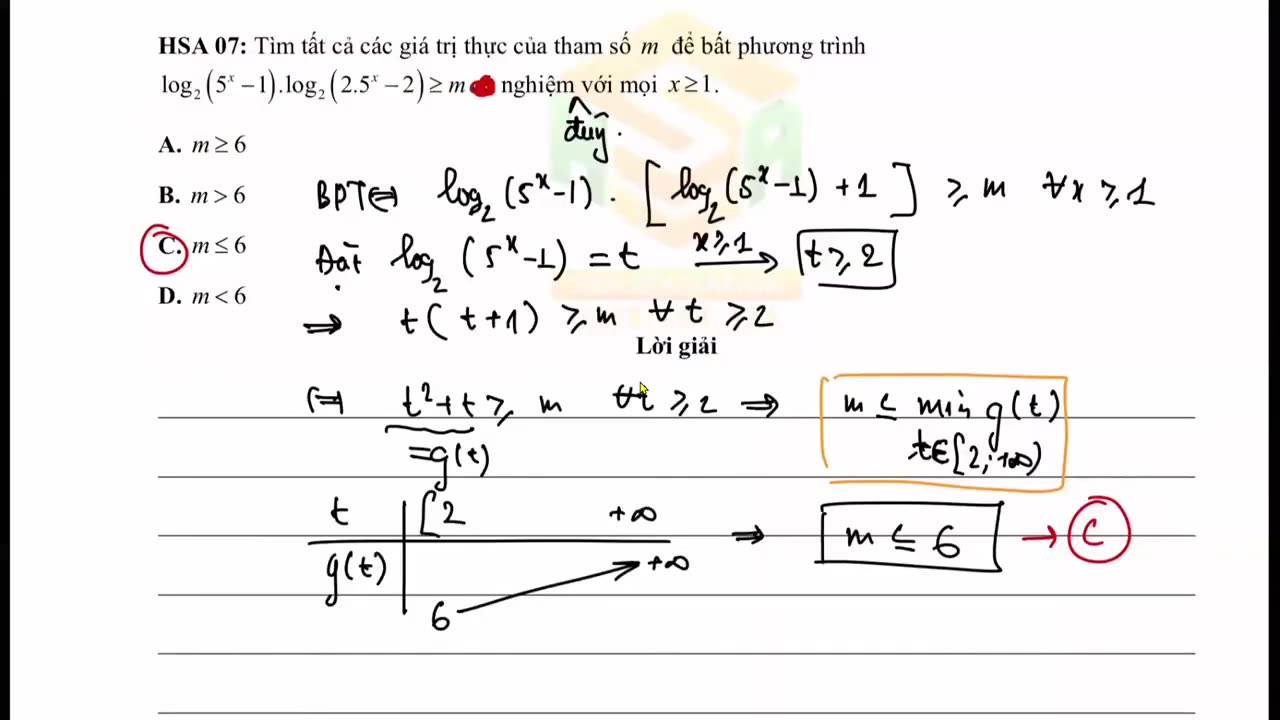 HSA 07: Tìm tất cả các giá trị thực của tham số m để bất phương trình
log₂(5ˣ −1).log₂(2.5ˣ −2) ≥ m nghiệm với mọi x ≥ 1.
đúng.
A. m ≥ 6
B. m > 6
C. m ≤ 6
D. m < 6
BPT ⇔ log₂(5ˣ-1) . [log₂(5ˣ-1) + 1] ≥ m ∀x ≥ 1
Đặt log₂(5ˣ-1) = t x ≥ 1 → t ≥ 2
⇒ t(t+1) ≥ m ∀ t ≥ 2
Lời giải
⇔ t² + t ≥ m ∀t ≥ 2 ⇒ m ≤ min g(t)
= g(t) t∈[2;+∞)
t [2 +∞
g(t) 6 +∞
⇒ m ≤ 6 → C